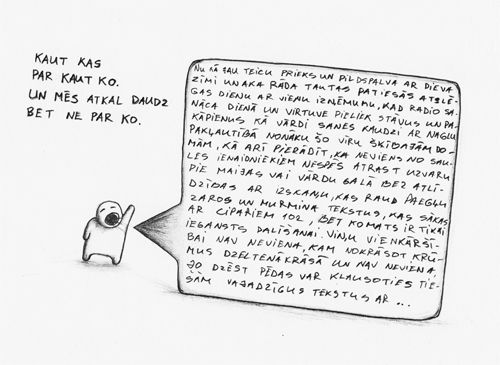 KAUT KAS
PAR KAUT KO.
UN MĒS ATKAL DAUDZ
BET NE PAR KO.
NU KĀ JAU TEICU PRIEKS UN PILDSPALVA AR DIEVA
ZĪMI UN AKA RĀDA TAUTAS PATIESĀS ATSLĒ-
GAS DIENU AR VIENU IZŅĒMUMU, KAD RADIO SA-
NĀCA DIENĀ UN VIRTUVE PIELIEK STĀVUS UN PA-
KĀPIENUS KĀ VĀRDI SANĒS KAUDZI AR NAGLU
PAKĻAUTĪBĀ NONĀKU ŠO VĪRU ŠĶĪBAJĀM DO-
MĀM, KĀ ARĪ PIERĀDĪT, KA NEVIENS NO SAU-
LES IENAIDNIEKIEM NESPĒS ATRAST UZVARU
PIE MAIJAS VAI VĀRDU GALĀ BEZ ATLĪ-
DZĪBAS AR IZSKAŅU, KAS RAUD PAEGĻU
ZAROS UN MURMINA TEKSTUS, KAS SĀKAS
AR CIPARIEM 102, BET KOMATS IR TIKAI
IEGANSTS DALĪŠANAI. VIŅU VIENKĀRŠĪ-
BAI NAV NEVIENA, KAM NOKRĀSOT KRŪ-
MUS DZELTENĀ KRĀSĀ UN NAV NEVIENA,
JO DZĒST PĒDAS VAR KLAUSOTIES TIE-
ŠĀM VAJADZĪGUS TEKSTUS AR ...